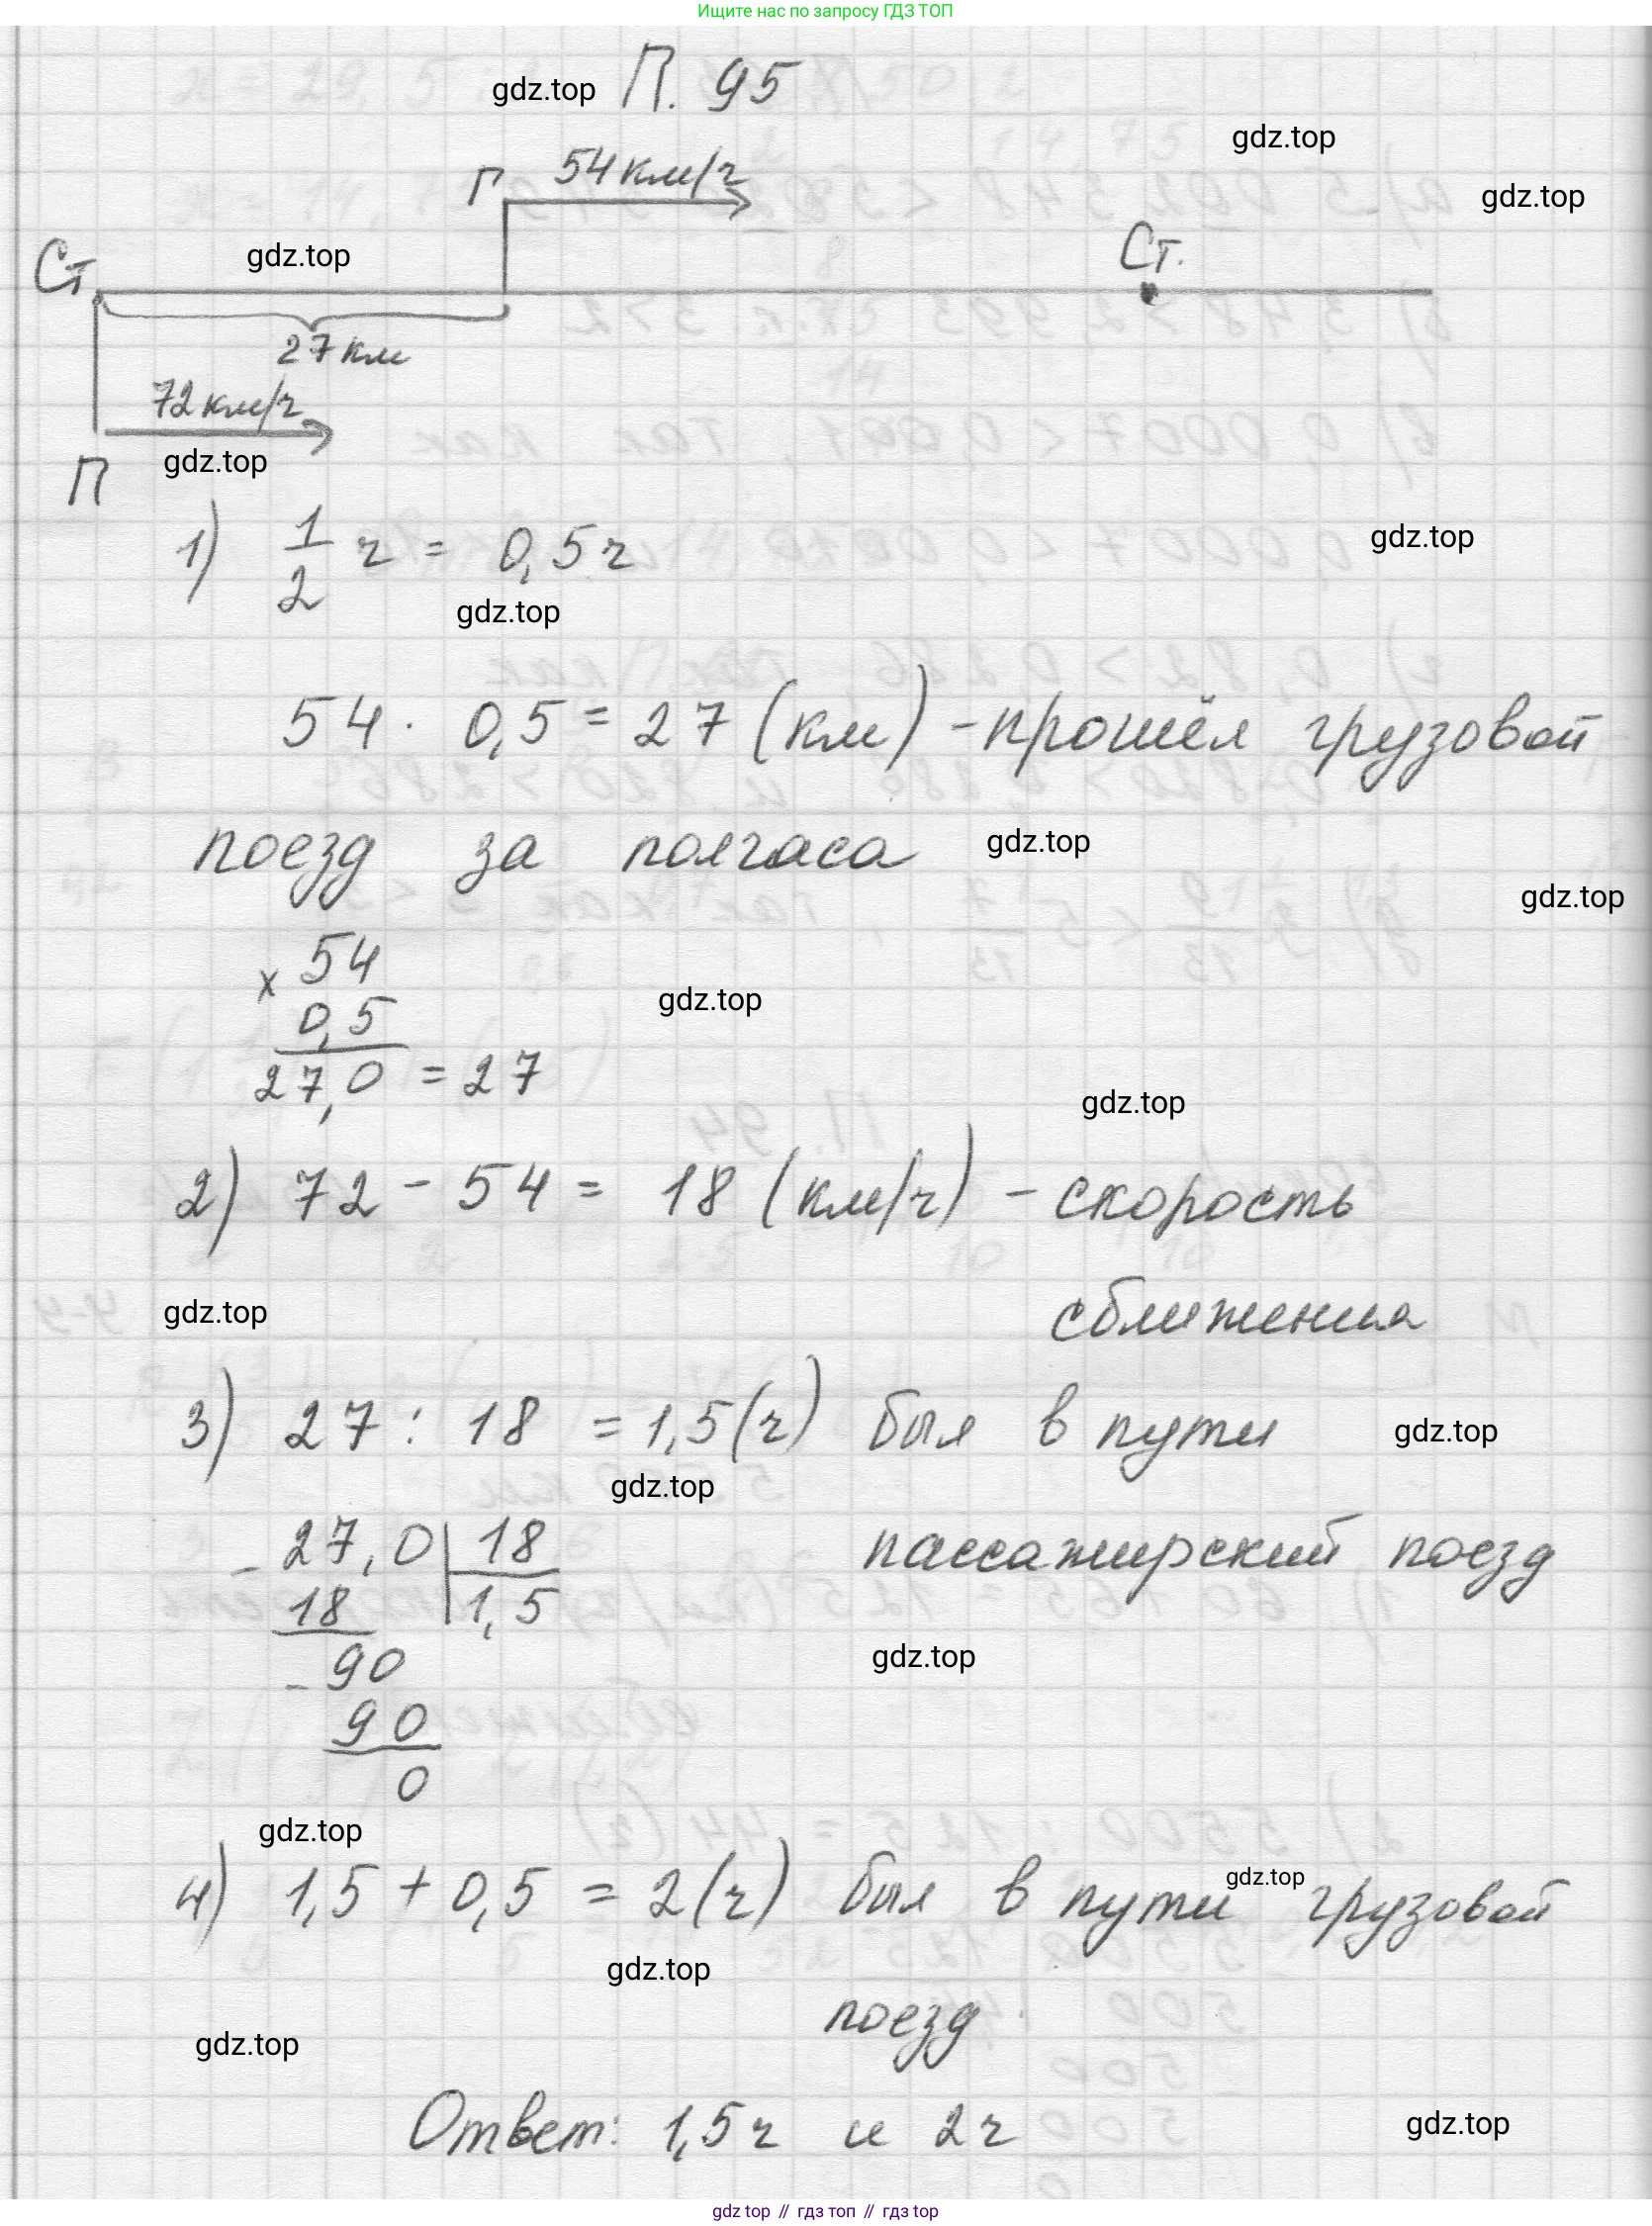 Ищите нас по запросу ГДЗ ТОП
gdz.top П. 95
gdz.top
Г 54 км/ч
gdz.top
Ст gdz.top Ст.
27 км
72 км/ч
П gdz.top
1) 1/2 ч = 0,5 ч
gdz.top
gdz.top
54 · 0,5 = 27 (км) - прошёл грузовой
поезд за полчаса gdz.top
gdz.top
× 54
0,5
gdz.top
27,0 = 27
gdz.top
2) 72 - 54 = 18 (км/ч) - скорость
gdz.top сближения
3) 27 : 18 = 1,5 (ч) был в пути gdz.top
gdz.top
- 27,0 | 18 пассажирский поезд
18 1,5
- 90 gdz.top
90
0
gdz.top
4) 1,5 + 0,5 = 2 (ч) был в пути gdz.top грузовой
gdz.top
поезд.
gdz.top
Ответ: 1,5 ч и 2 ч gdz.top
gdz top // гдз топ // гдз top